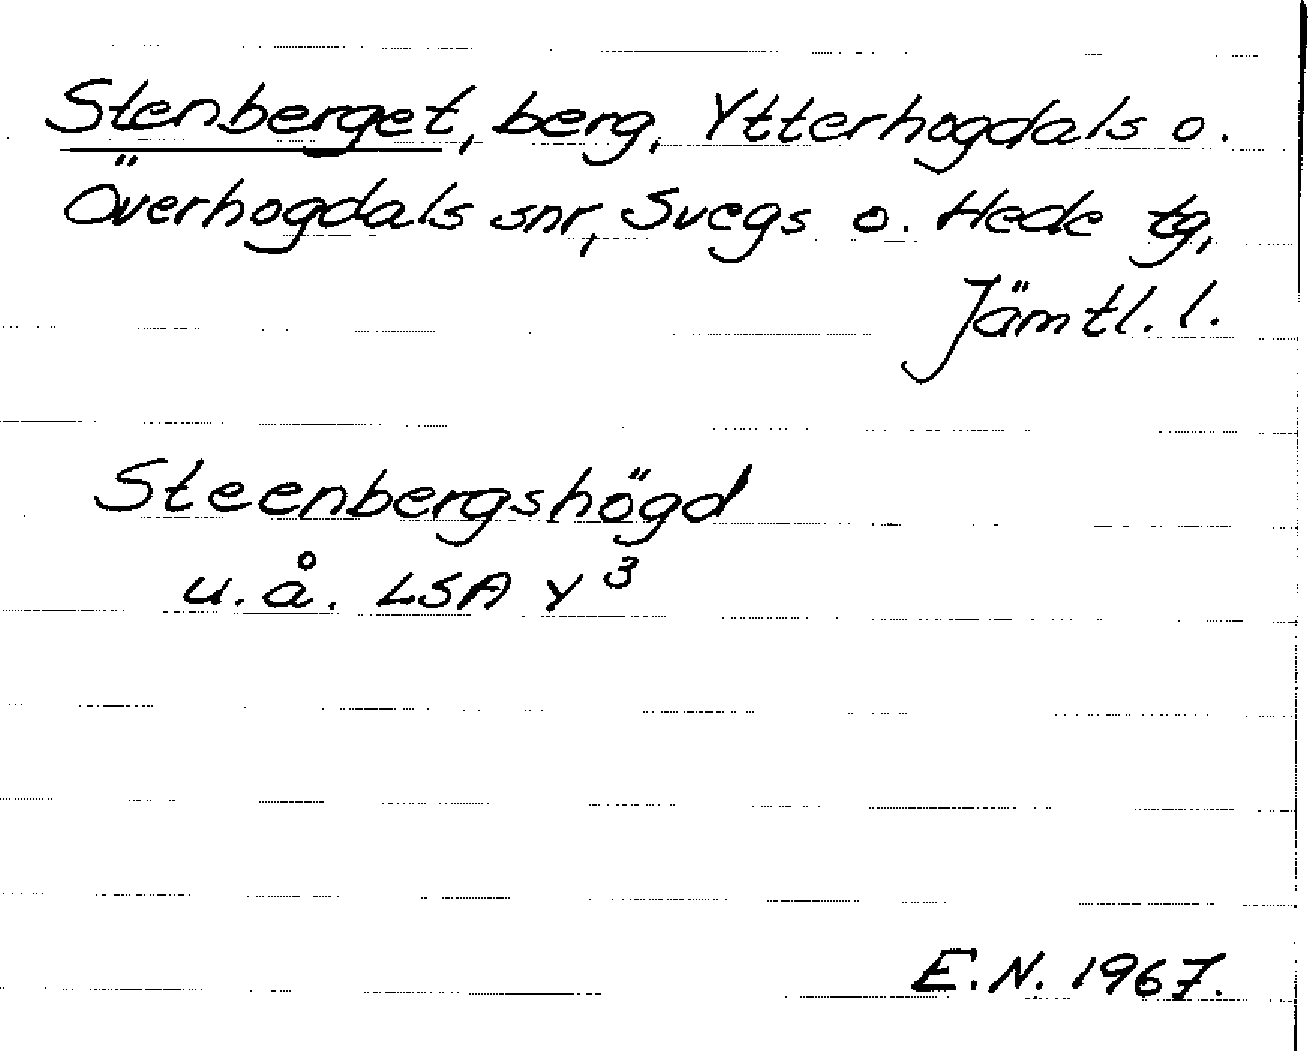 Stenberget, berg, Ytterhogdals o.
Överhogdals snr, Svegs o. Hede tg,
Jämtl. l.
Steenbergshögd
u.å. LSA Y³
E.N. 1967.